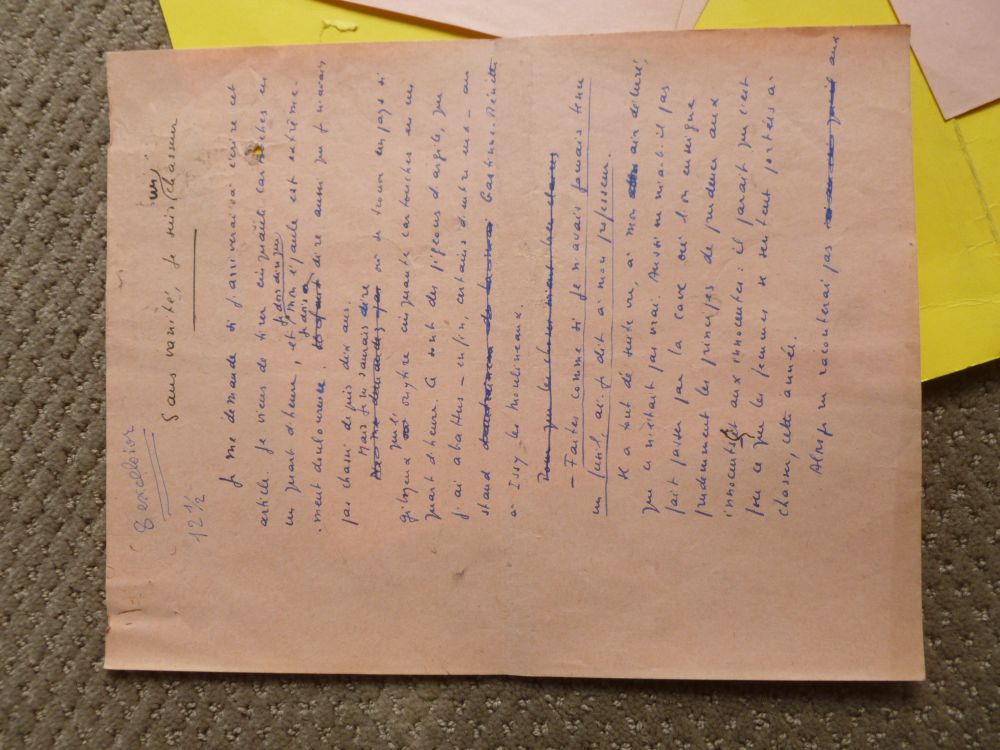 Excelsior
12 1/2
Sans vanité, je suis un Chasseur
Je me demande si j'arriverai à écrire cet
article. Je viens de tirer cinquante cartouches en
un quart d'heure, et mon épaule est extrême-
ment douloureuse. Je dois dire aussi que je n'avais
pas chassé depuis dix ans.
Mais je ne saurais dire
où se trouve un pays si
giboyeux que
quart d'heure. Ce sont des pigeons d'argile, que
j'ai abattus — enfin, certains d'entre eux — au
stand Gastinne-Renette
à Issy les Moulineaux.
— Faites comme si je n'avais jamais tenu
un fusil, ai-je dit à mon professeur.
Il a tout de suite vu, à mon air déluré,
que ce n'était pas vrai. Aussi m'a-t-il pas
fait passer par la cave où l'on enseigne
prudemment les principes de prudence aux
innocents et aux innocentes : il paraît que c'est
fou ce que les femmes se sentent portées à
chasser, cette année.
Alors je ne raconterai pas aux